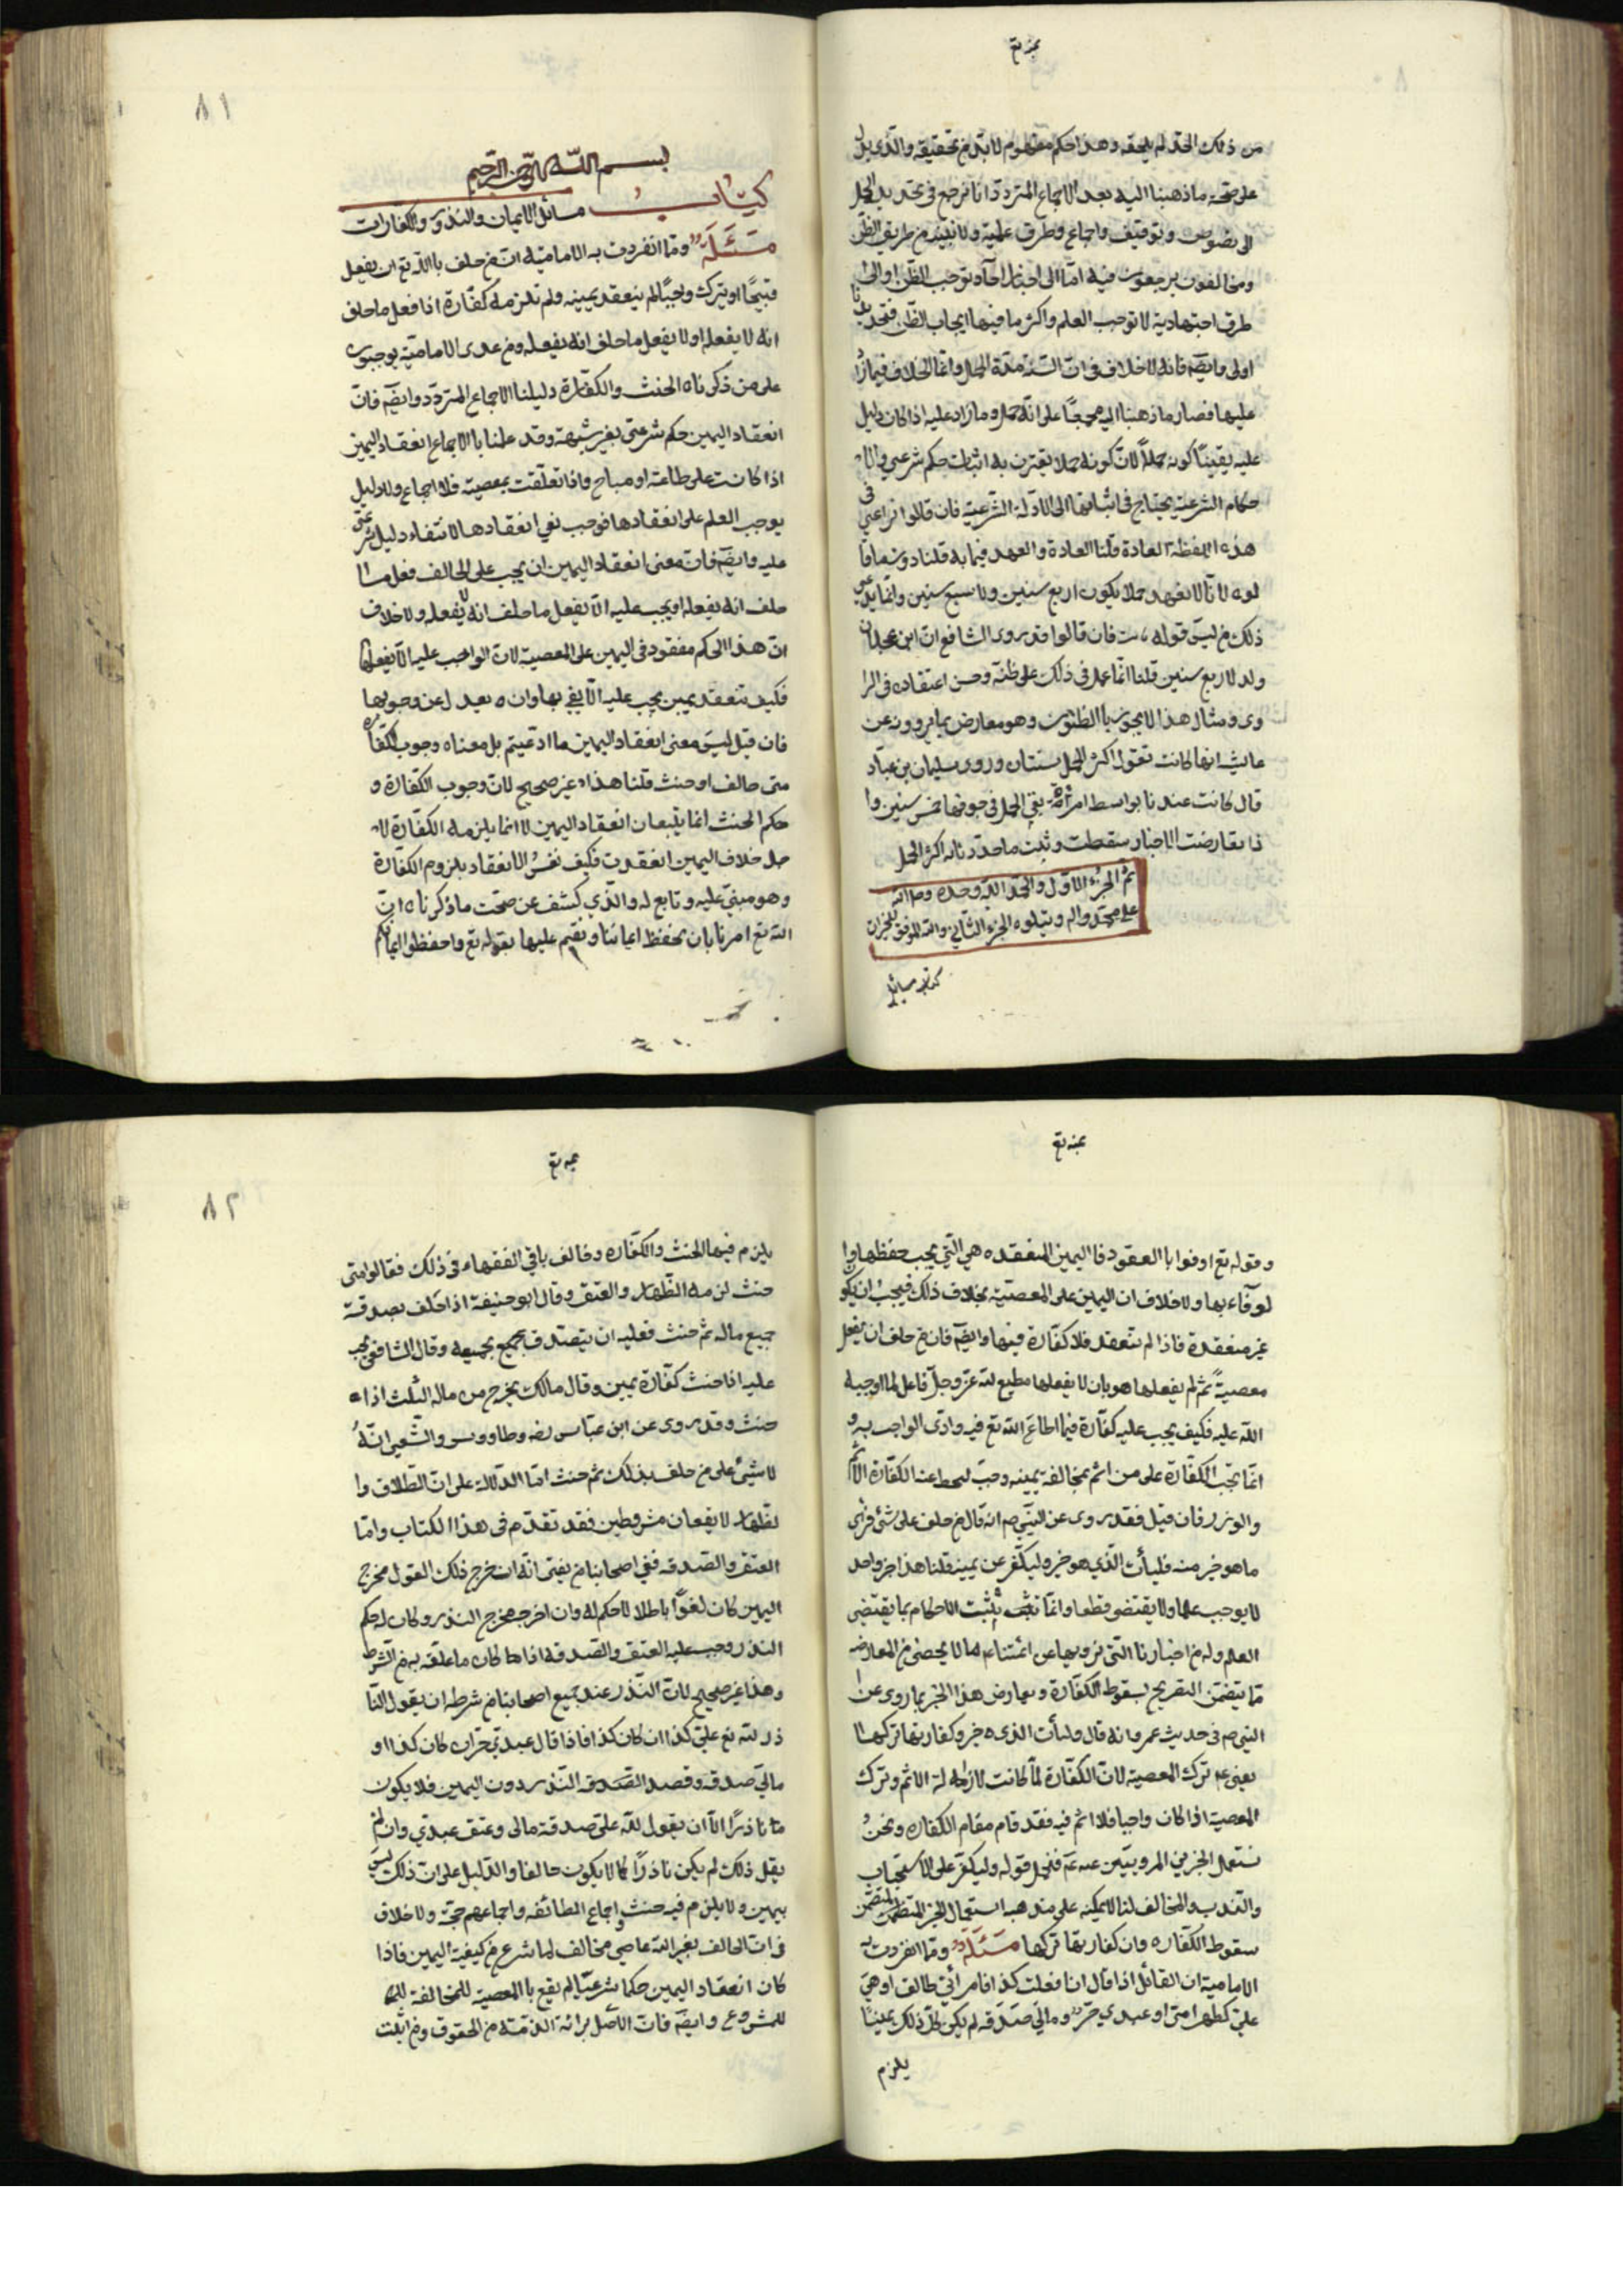 من ذلك الحد لم يلحقه وهذا حكم معلوم لا بد من تحقيقه والذي يدل
على صحة ما ذهبنا اليه بعد الاجماع المتردد انا نرجع في تحديد الحمل
الى نصوص وتوقيف واجماع وطرق علمية ولا نثبته من طريق الظن
ومخالفون يرجعون فيه اما الى اخبار احاد توجب الظن او الى
طرق اجتهادية لا توجب العلم واكثر ما فيها ايجاب الظن فتحديدنا
اولى وايضا فانه لا خلاف في ان السنة مدة الحمل وانما الخلاف فيما زاد
عليها فصار ما ذهبنا اليه مجمعا على انه حمل وما زاد عليه اذا كان دليل
عليه يقينا كونه حملا لان كونه حملا يقترن به اثبات حكم شرعي والا
حكام الشرعية يحتاج في اثباتها الى الادلة الشرعية فان قالوا نراعي في
هذه اللفظة العادة قلنا العادة والعهد فيما به قلنا دون ما قا
لوه لانا لا نعهد حملا يكون اربع سنين ولا سبع سنين وانما يدعي
ذلك من ليس قوله فان قالوا قد روى الشافعي ان ابن عجلان
ولد لاربع سنين قلنا انما عمل في ذلك على ظنه وحسن اعتقاده في الرا
وى ومثال هذا لا يجوز باالظنون وهو معارض بما يروون عن
عايشه انها كانت تقول اكثر الحمل سنتان وروى سليمان بن عباد
قال كانت عندنا بواسط امراة بقي الحمل في جوفها خمس سنين وا
ذا تعارضت الاخبار سقطت وثبت ما حددنا به اكثر الحمل
تم الجزء الاول والحمد لله وحده وصلى الله
على محمد واله ويتلوه الجزء الثاني والله الموفق للخيرات
كتاب مسائل
٨١
بسم الله الرحمن الرحيم
كتاب مسائل الايمان والنذور والكفارات
مسئلة ومما انفردت به الامامية ان من حلف باالله تع ان يفعل
قبيحا او يترك واجبا لم ينعقد يمينه ولم تلزمه كفارة اذا فعل ما حلف
انه لا يفعله او لا يفعل ما حلف انه يفعله ومن عدى الامامية يوجبون
على من ذكرناه الحنث والكفارة دليلنا الاجماع المتردد وايضا فان
انعقاد اليمين حكم شرعي بغير شبهة وقد علمنا باالاجماع انعقاد اليمين
اذا كانت على طاعة او مباح واذا تعلقت بمعصية فلا اجماع ولا دليل
يوجب العلم على انعقادها فوجب نفي انعقادها لانتفاء دليل شرعي
عليه وايضا فان معنى انعقاد اليمين ان يجب على الحالف فعل ما
حلف انه يفعله او يجب عليه الا يفعل ما حلف انه لا يفعله ولا خلاف
ان هذا الحكم مفقود في اليمين على المعصية لان الواجب عليه الا يفعلها
فكيف تنعقد يمين يجب عليه الا يفي بها وان ه يعدل عن وجوبها
فان قيل ليس معنى انعقاد اليمين ما ادعيتم بل معناه وجوب الكفارة
متى خالف او حنث قلنا هذا غير صحيح لان وجوب الكفارة و
حكم الحنث انما يتبعان انعقاد اليمين لا انما يلزمه الكفارة لا
جل خلاف اليمين انعقدت فكيف نفسر الانعقاد بلزوم الكفارة
وهو مبني عليه وتابع له والذي كشف عن صحت ما ذكرناه ان
الله تع امرنا بان نحفظ ايماننا ونقيم عليها بقوله تع واحفظوا ايمانكم
وقوله تع اوفوا باالعقود فاليمين المنعقده هي التي يجب حفظها وا
لوفاء بها ولا خلاف ان اليمين على المعصية بخلاف ذلك فيجب ان يكون
غير منعقدة فاذا لم تنعقد فلا كفارة فيها وايضا فان من حلف ان يفعل
معصية ثم لم يفعلها هو بان لا يفعلها مطيع لله عز وجل فاعل لما اوجبه
الله عليه فكيف يجب عليه كفارة فيما اطاع الله تع فيه وادى الواجب به و
انما تجب الكفارة على من اثم بمخالفة يمينه وجب ليحط عنه الكفارة الاثم
والوزر فان قيل فقد روى عن النبي ص انه قال من حلف على شئ فرأى
ما هو خير منه فليأت الذي هو خير وليكفر عن يمينه قلنا هذا خبر واحد
لا يوجب علما ولا يقتضي قطعا وانما تثبت الاحكام بما يقتضي
العلم وله من اخبارنا التي نرويها عن ائمتناء م ما لا يحصى من المعارضه
مما يتضمن التصريح بسقوط الكفارة ويعارض هذا الخبر بما روى عن
النبي ص في حديث عمرو انه قال وليأت الذي ه خير وكفارتها تركها
يعني ع م ترك المعصية لان الكفارة لما كانت لازالة الاثم وترك
المعصية اذا كان واجبا فلا اثم فيه فقد قام مقام الكفارة ونحن
نستعمل الخبرين المرويين عنه ع م فنحمل قوله وليكفر على الاستحباب
والندب والمخالف لنا لا يمكنه على مذهبه استعمال الخبر المتضمن
سقوط الكفاره وان كفارتها تركها مسئلة ومما انفردت به
الامامية ان القائل اذا قال ان فعلت كذا فامرأتي طالق او هي
علي كظهر امي او عبدي حر او مالي صدقه لم يكن كل ذلك يمينا
يلزم
٨٢
يلزم فيها الحنث والكفاره وخالف باقي الفقهاء في ذلك فقالوا متى
حنث لزمه الظهار والعتق وقال ابو حنيفة اذا حلف بصدقة
جميع ماله ثم حنث فعليه ان يتصدق بجميعه وقال الشافعي يجب
عليه اذا حنث كفارة يمين وقال مالك يخرج من ماله الثلث اذا
حنث وقد روى عن ابن عباس رضه وطاووس والشعبي انه
لا شئ على من حلف بذلك ثم حنث اما الدلالة على ان الطلاق وا
لظهار لا يقعان مشروطين فقد تقدم في هذا الكتاب واما
العتق والصدقه ففي اصحابنا من يفتي انه ان خرج ذلك القول مخرج
اليمين كان لغوا باطلا لا حكم له وان اخرجه مخرج النذر وكان له حكم
النذر وجب عليه العتق والصدقه اذا كان ما علقه به من الشرط
وهذا غير صحيح لان النذر عند جميع اصحابنا من شرطه ان يقول النا
ذر لله تع علي كذا ان كان كذا فاذا قال عبدي حر ان كان كذا او
مالي صدقه وقصد الصدقه النذر دون اليمين فلا يكون
ناذرا الا ان يقول لله علي صدقة مالي وعتق عبدي وان لم
يقل ذلك لم يكن ناذرا كما لا يكون حالفا والدليل على ان ذلك ليس
بيمين ولا يلزم فيه حنث اجماع الطائفه واجماعهم حجة ولا خلاف
في ان الحالف بغير الله عاصي مخالف لما شرع من كيفية اليمين فاذا
كان انعقاد اليمين حكما شرعيا لم يقع باالمعصية المخالفة
للمشروع وايضا فان الاصل برائة الذمة من الحقوق ومن اثبت